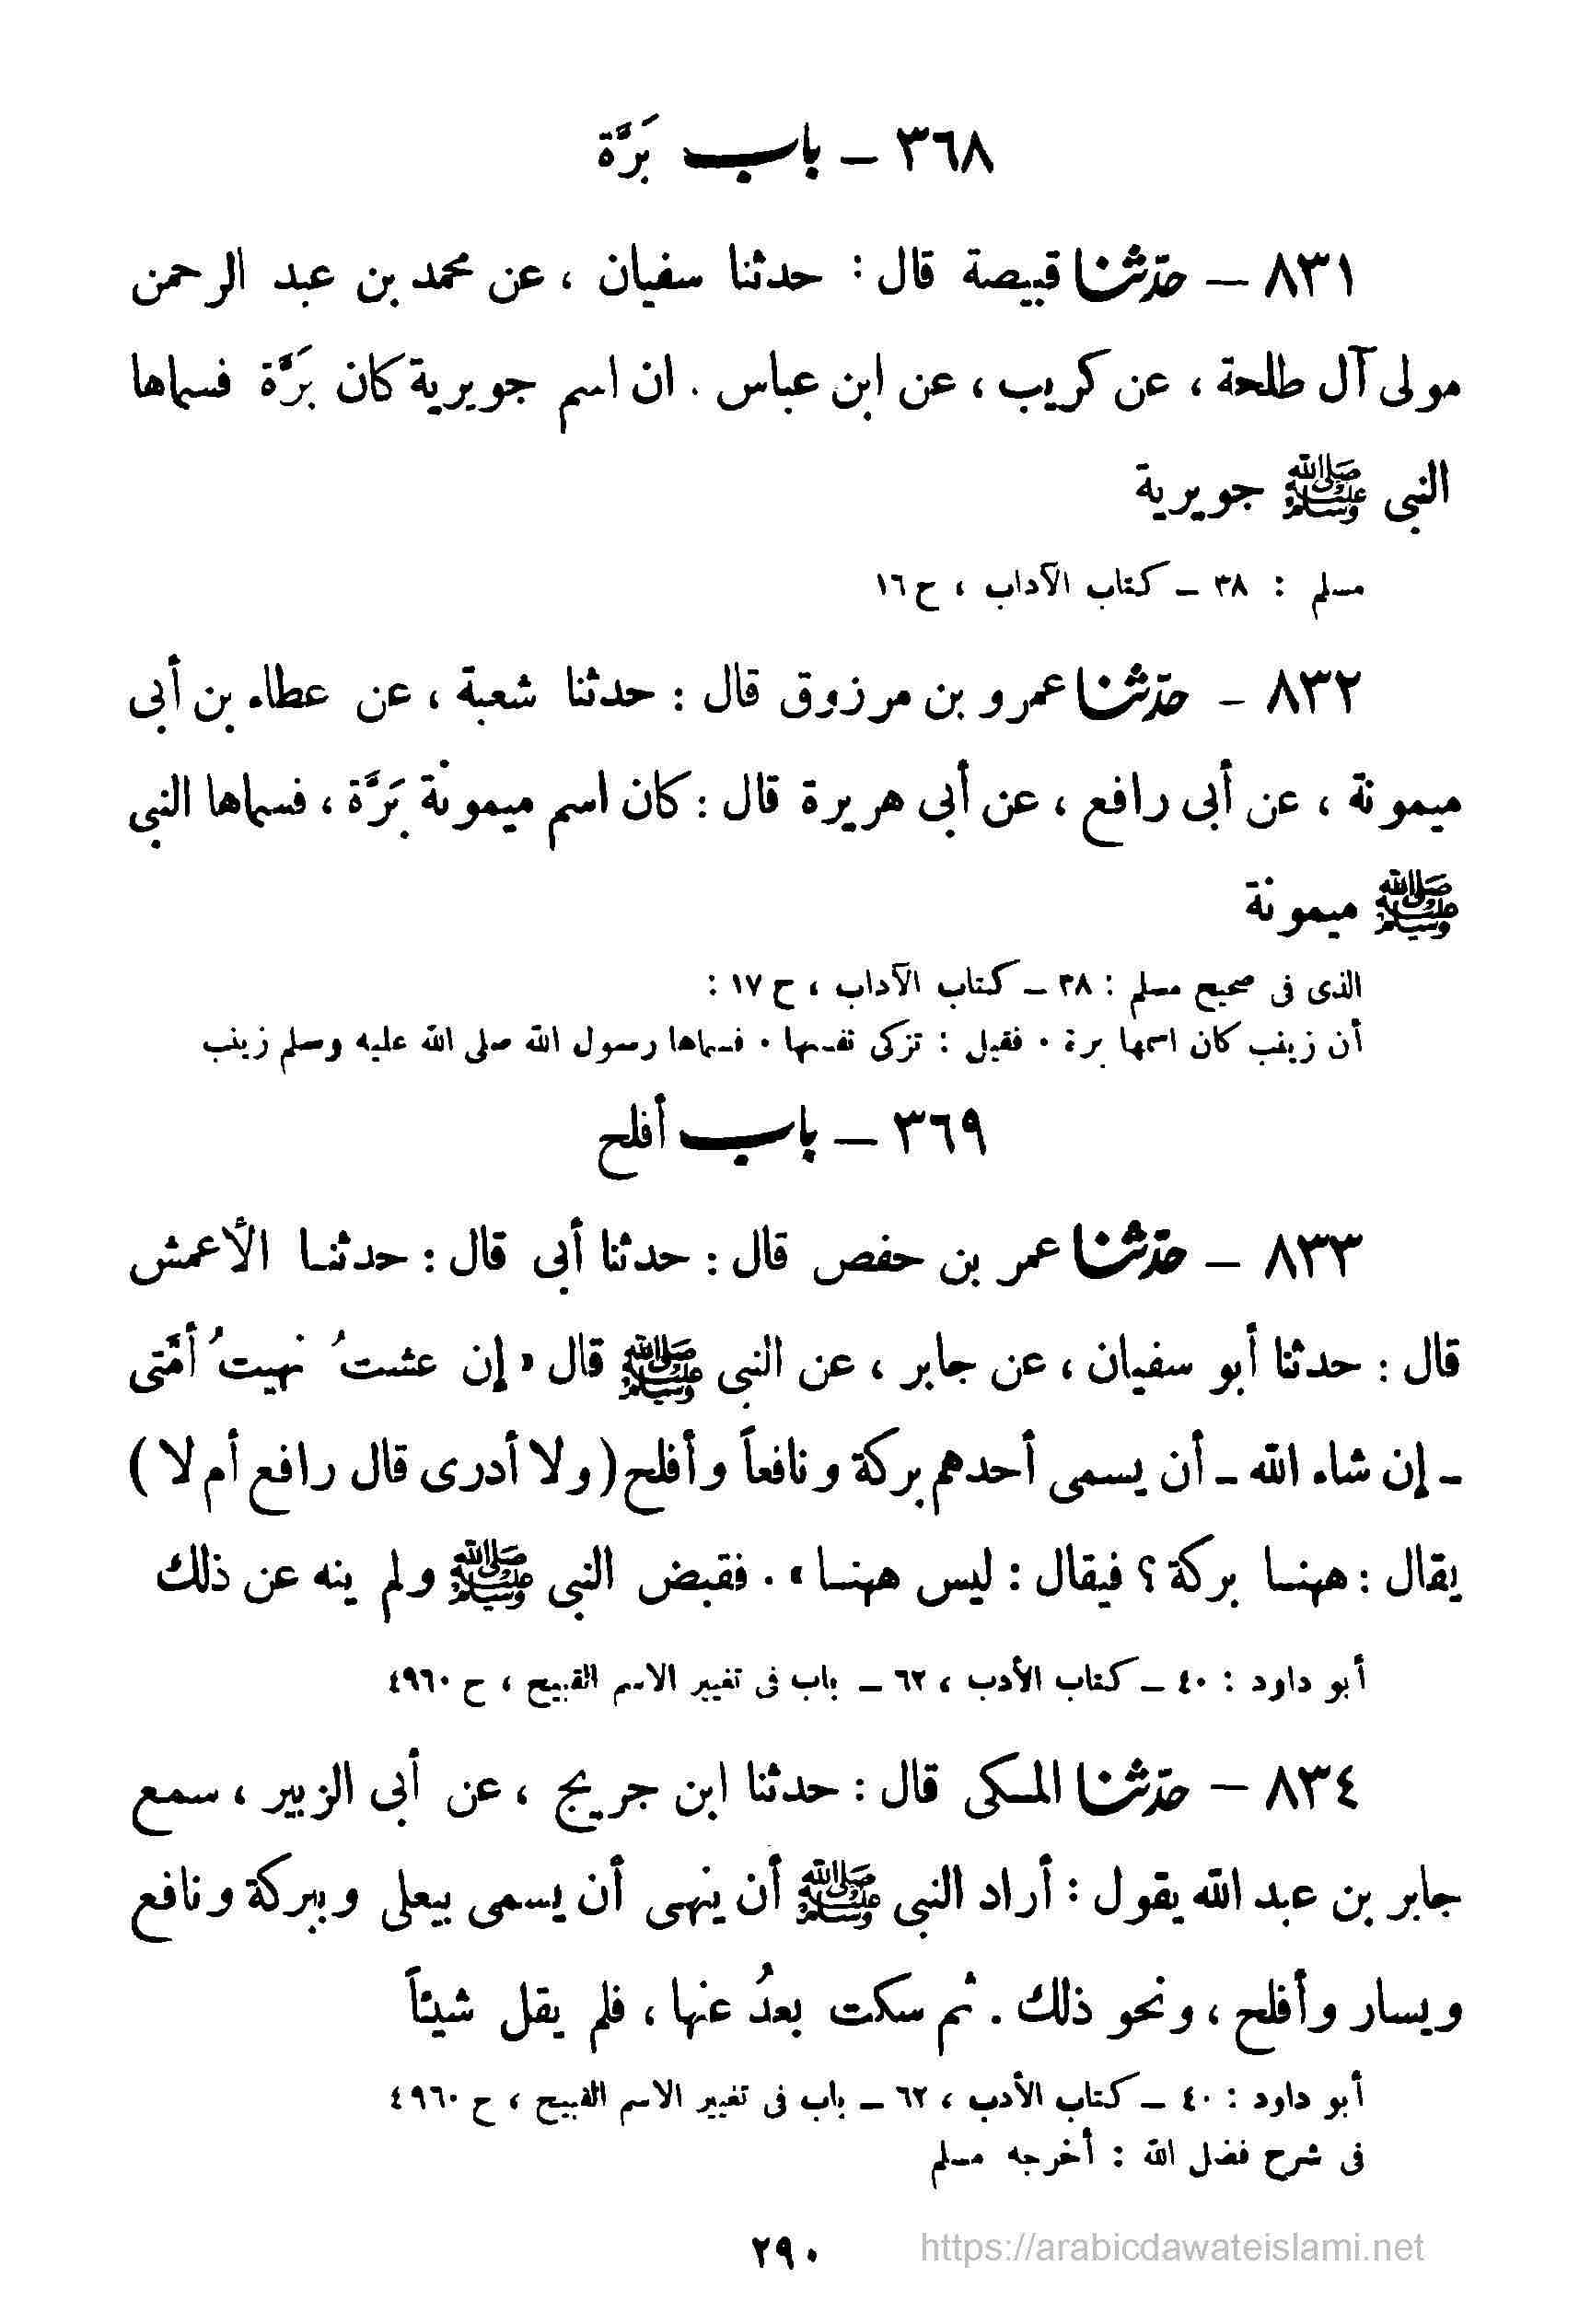 ٣٦٨ – باب بَرَّة
٨٣١ – حدّثنا قبيصة قال : حدثنا سفيان ، عن محمد بن عبد الرحمن
مولى آل طلحة ، عن كريب ، عن ابن عباس . ان اسم جويرية كان بَرَّة فسماها
النبى ﷺ جويرية
مسلم : ٣٨ – كتاب الآداب ، ح ١٦
٨٣٢ – حدّثنا عمرو بن مرزوق قال : حدثنا شعبة ، عن عطاء بن أبى
ميمونة ، عن أبى رافع ، عن أبى هريرة قال : كان اسم ميمونة بَرَّة ، فسماها النبى
ﷺ ميمونة
الذى فى صحيح مسلم : ٣٨ – كتاب الآداب ، ح ١٧ :
أن زينب كان اسمها برة ٠ فقيل : تزكى نفسها ٠ فسماها رسول الله صلى الله عليه وسلم زينب
٣٦٩ – باب أفلح
٨٣٣ – حدّثنا عمر بن حفص قال : حدثنا أبى قال : حدثنا الأعمش
قال : حدثنا أبو سفيان ، عن جابر ، عن النبى ﷺ قال « إن عشتُ نهيتُ أمَّتى
ـ إن شاء الله ـ أن يسمى أحدهم بركة ونافعاً وأفلح (ولا أدرى قال رافع أم لا)
يقال : ههنا بركة ؟ فيقال : ليس ههنا » . فقبض النبى ﷺ ولم ينه عن ذلك
أبو داود : ٤٠ – كتاب الأدب ، ٦٢ – باب فى تغيير الاسم القبيح ، ح ٤٩٦٠
٨٣٤ – حدّثنا المكى قال : حدثنا ابن جريج ، عن أبى الزبير ، سمع
جابر بن عبد الله يقول : أراد النبى ﷺ أن ينهى أن يسمى بيعلى وببركة ونافع
ويسار وأفلح ، ونحو ذلك . ثم سكت بعدُ عنها ، فلم يقل شيئاً
أبو داود : ٤٠ – كتاب الأدب ، ٦٢ – باب فى تغيير الاسم القبيح ، ح ٤٩٦٠
فى شرح فضل الله : أخرجه مسلم
٢٩٠
https://arabicdawateislami.net